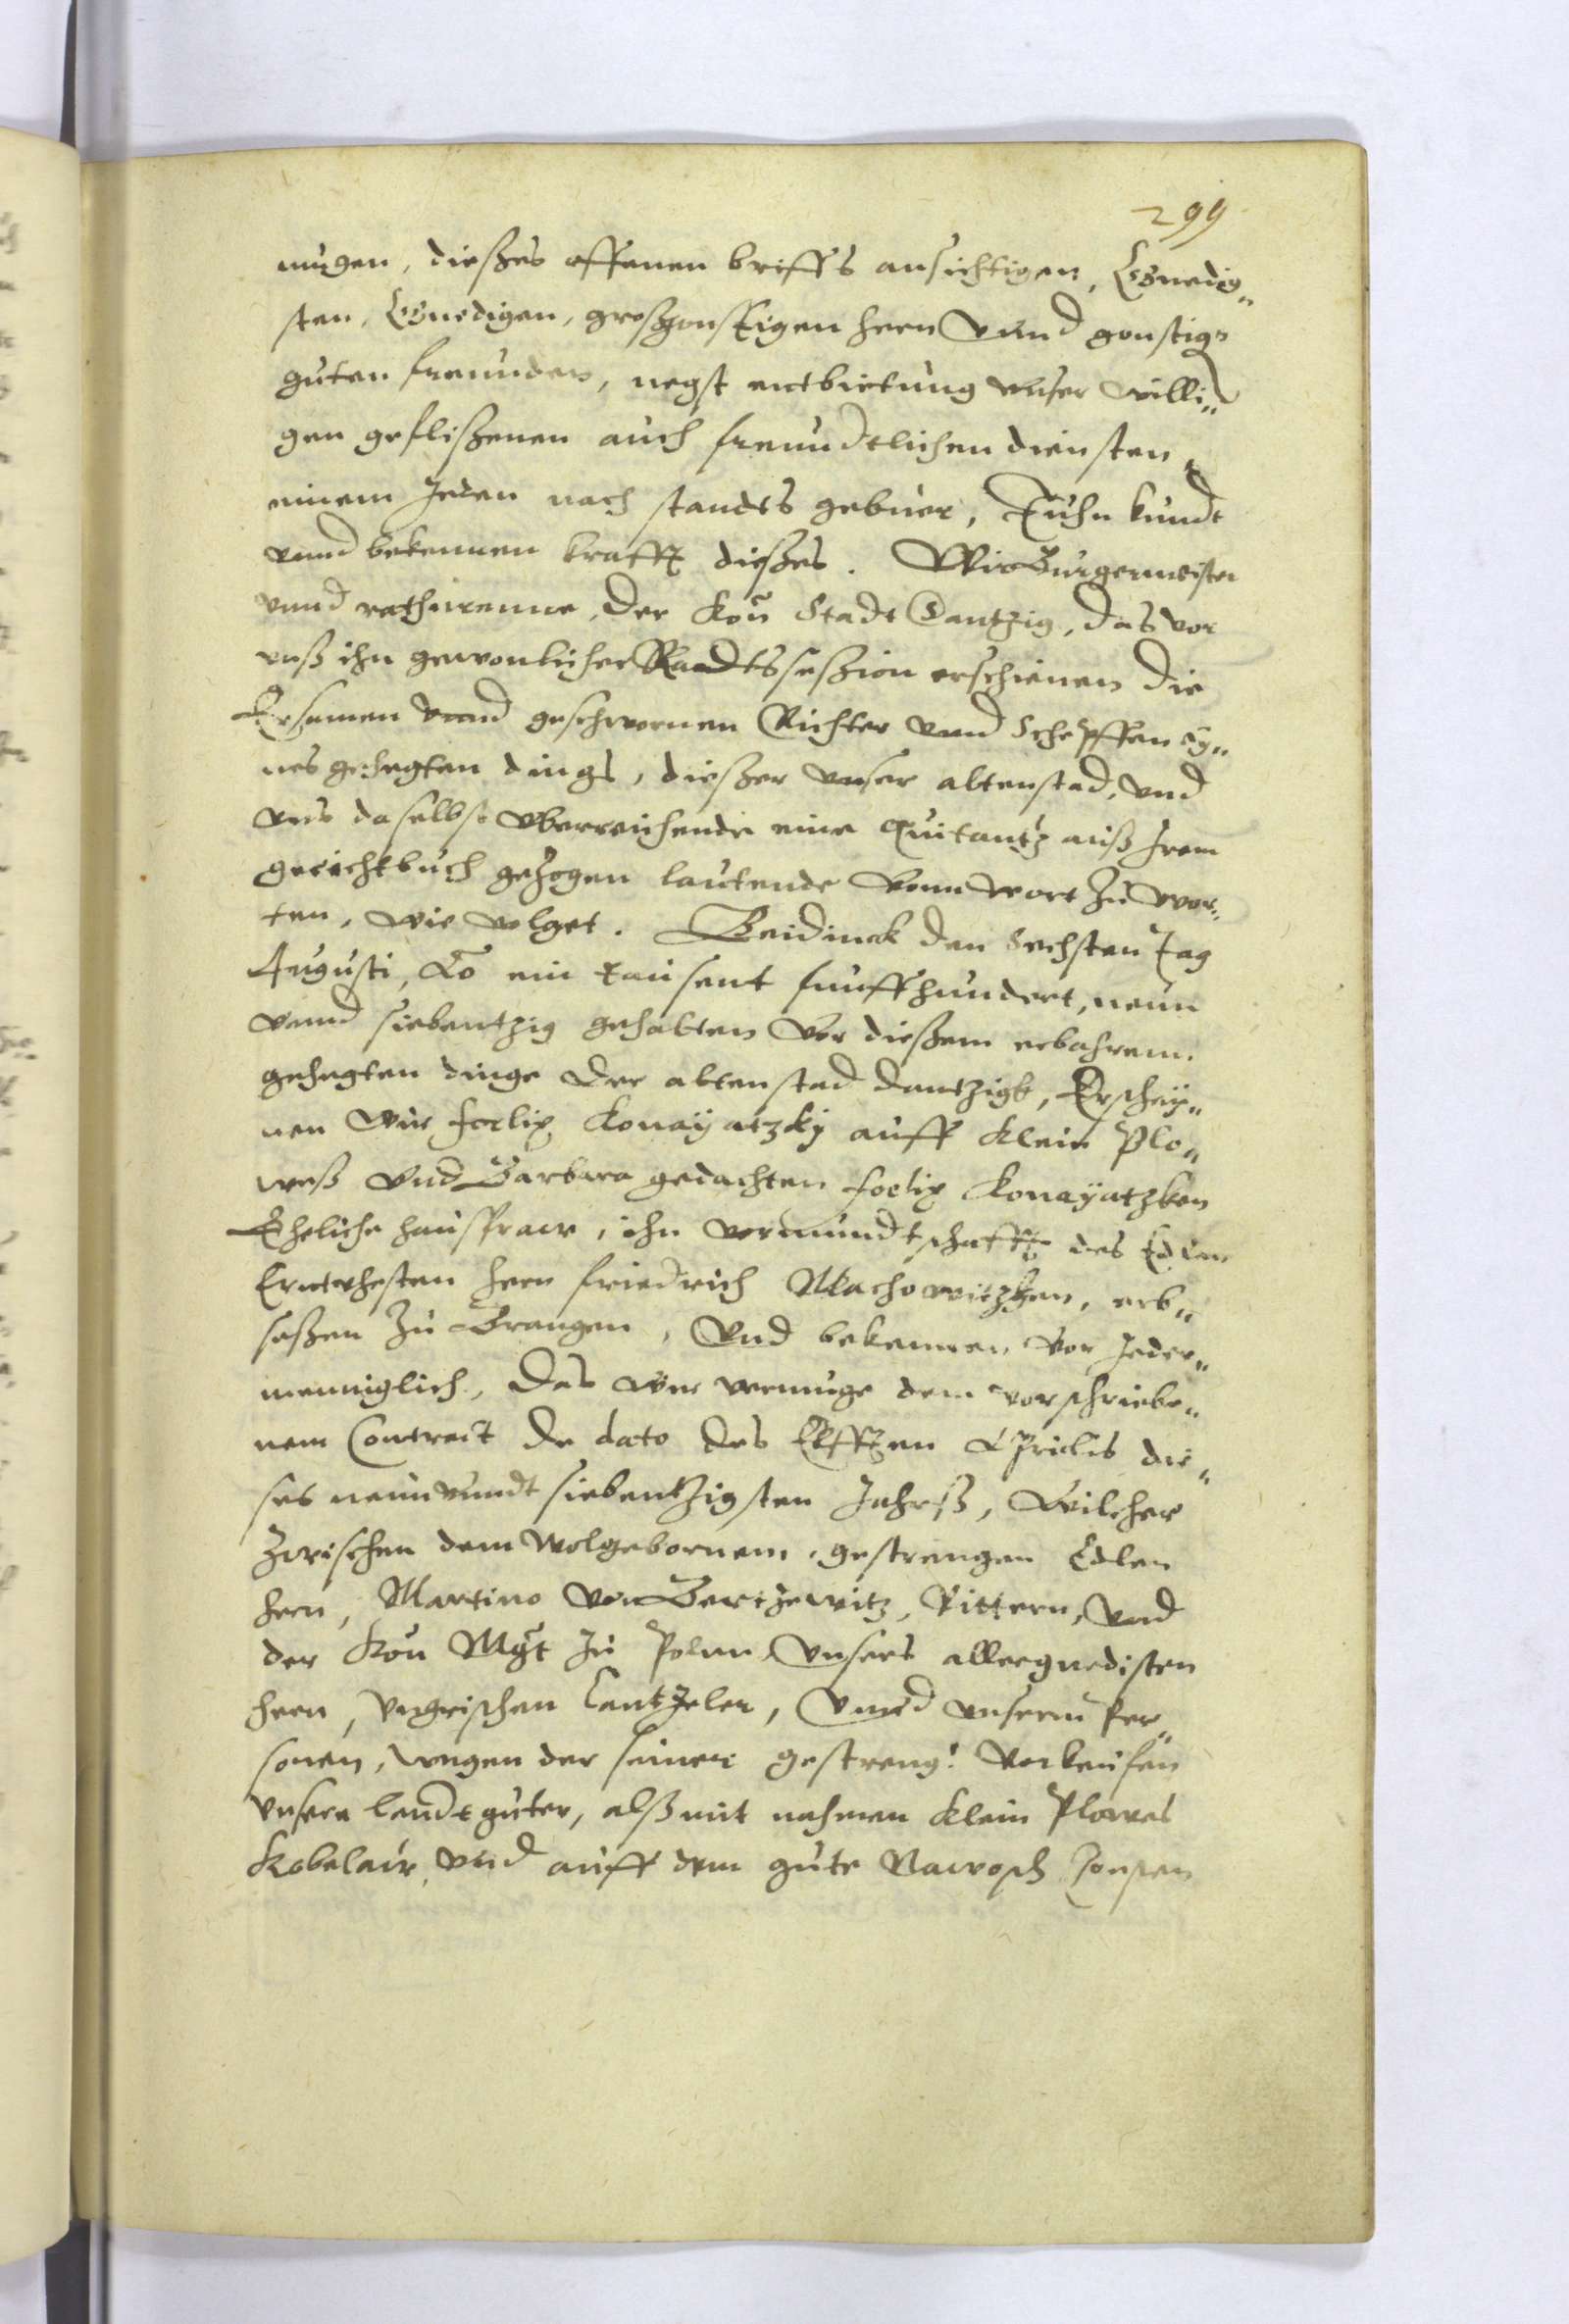 299
mugen, dießes offenen brieffs ansichtigen, Gnedig„
sten, Gnedigen, großgonstigen hern vnnd gonstig
guten freunden, negst entbietung vnser willi„
gen geflißenen auch freundtlichen diensten,
einem Jeden nach standts gebuer, Tuhn kundt
vnnd bekennen krafft dießes. Wir Burgermeister
vnnd rathmenne, der Kön Stadt Dantzig, das vor
vnß ihn gewonlicher Radtssession erschienen die
Ersamen vnnd geschwornen Richter vnnd Scheppffen ey„
nes gehegten dings, dießer vnser altenstad, vnd
vns daselbst vberreichende eine Quitantz auß Jrem
gerichtbuch gezogen lautende vonn wort zu wor„
ten, wie volget. Beidinck den Sechsten tag
Augusti, Ao ein tausent funffhundert, neun
vnnd siebentzig gehalten vor dießem erbahrem
gehegten dinge der altenstad dantzigk, Erschey„
nen wir foelix Konayatzky auff Klein Plo„
weß vnd Barbara gedachten foelix Konayatzken
Eheliche hausfraw, ihn vormundtschafft des Edlen
Erntvhesten hern friedrich Machowitzken, erb„
seßen zu Prangen, vnd bekennen vor Jeder„
menniglich, das wir vermuge dem vorschriebe„
nem Contract de dato des Elfften Aprilis die„
ses neunvnndt siebentzigsten Jahrß, wilcher
zwischen dem Wolgebornem, gestrengen Edlen
hern, Martino von Bertzewitz, Rittern, vnd
der Kön Mgt zu Polen vnsers allergnedisten
hern, vngrischen Cantzeler, vnnd vnsern Per„
sonen, wegen der seiner gestreng: verkaufen
vnsere landtguter, alß mit nahmen Klein Plowes
Kobelaw, vnd auff dem gute